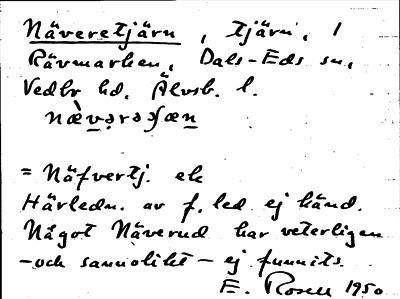 Näveretjärn, tjärn, 1
Rävmarken, Dals-Eds sn,
Vedbo hd. Älvsb. l.
næ̀vərəʃæn
= Näfvertj. ek
Härledn. av f. led ej känd.
Något Näverud har veterligen
-och sannolikt- ej funnits.
E. Rosell 1950